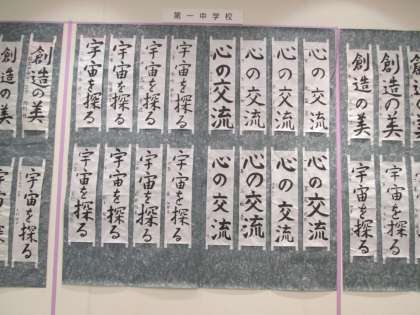 第一中学校
創造の美
創造の美
創造の美
宇宙を探る
宇宙を探る
宇宙を探る
心の交流
心の交流
心の交流
心の交流
宇宙を探る
宇宙を探る
宇宙を探る
宇宙を探る
心の交流
心の交流
心の交流
心の交流
宇宙を探る
宇宙を探る
宇宙を探る
宇宙を探る
創造の美
創造の美
宇宙を探る
宇宙を探る